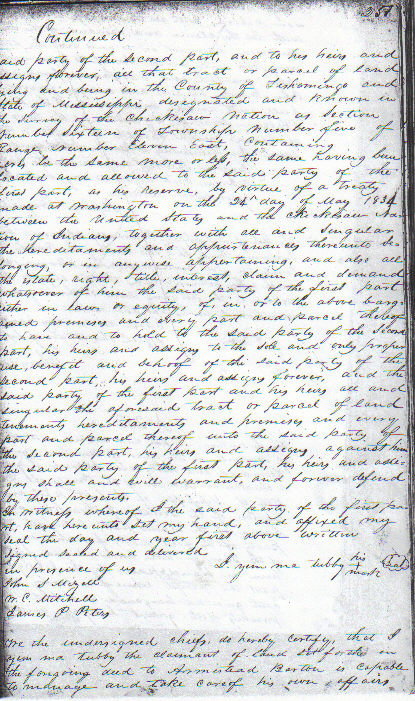 251
Continued
aid party of the second part, and to his heirs and
ssigns forever, all that tract or parcel of land
ying and being in the County of Tishomingo and
tate of Mississippi designated and known in
he Survey of the Chickasaw Nation as Section
number Sixteen of Township Number five of
Range number Eleven East, Containing
acres be the same more or less, the same having been
located and allowed to the said party of the
first part, as his Reserve, by virtue of a Treaty
made at Washington on the 24th day of May 1834
between the United States and the Chickasaw Na
ion of Indians, together with all and Singular
the hereditaments and appurtenances thereunto be
longing, or in anywise appertaining, and also all
the estate, right, title, interest, claim and demand
whatsoever of him the said party of the first part
either in law or equity, of, in, or to the above barg
ained premises and every part and parcel thereof
to have and to hold to the said party of the second
part, his heirs and assigns to the sole and only proper
use, benefit and behoof of the said party of the
second part, his heirs and assigns forever, and the
said party of the first part and his heirs all and
singular the aforesaid tract or parcel of land
tenements hereditaments and premises and every
part and parcel thereof unto the said party of
the second part, his heirs and assigns against him
the said party of the first part, his heirs and assi-
gns shall and will warrant, and forever defend
by these presents.
In witness whereof I the said party of the first pa
rt, have hereunto set my hand, and affixed my
seal the day and year first above written
Signed sealed and delivered
in presence of us I yim ma tubby his x mark seal
John S
W. C. Mitchell
James P Peters
We the undersigned chiefs do hereby certify, that I
yim ma tubby the claimant of land set forth in
the foregoing deed to Armestead Barton is capable
to manage and take care of his own affairs